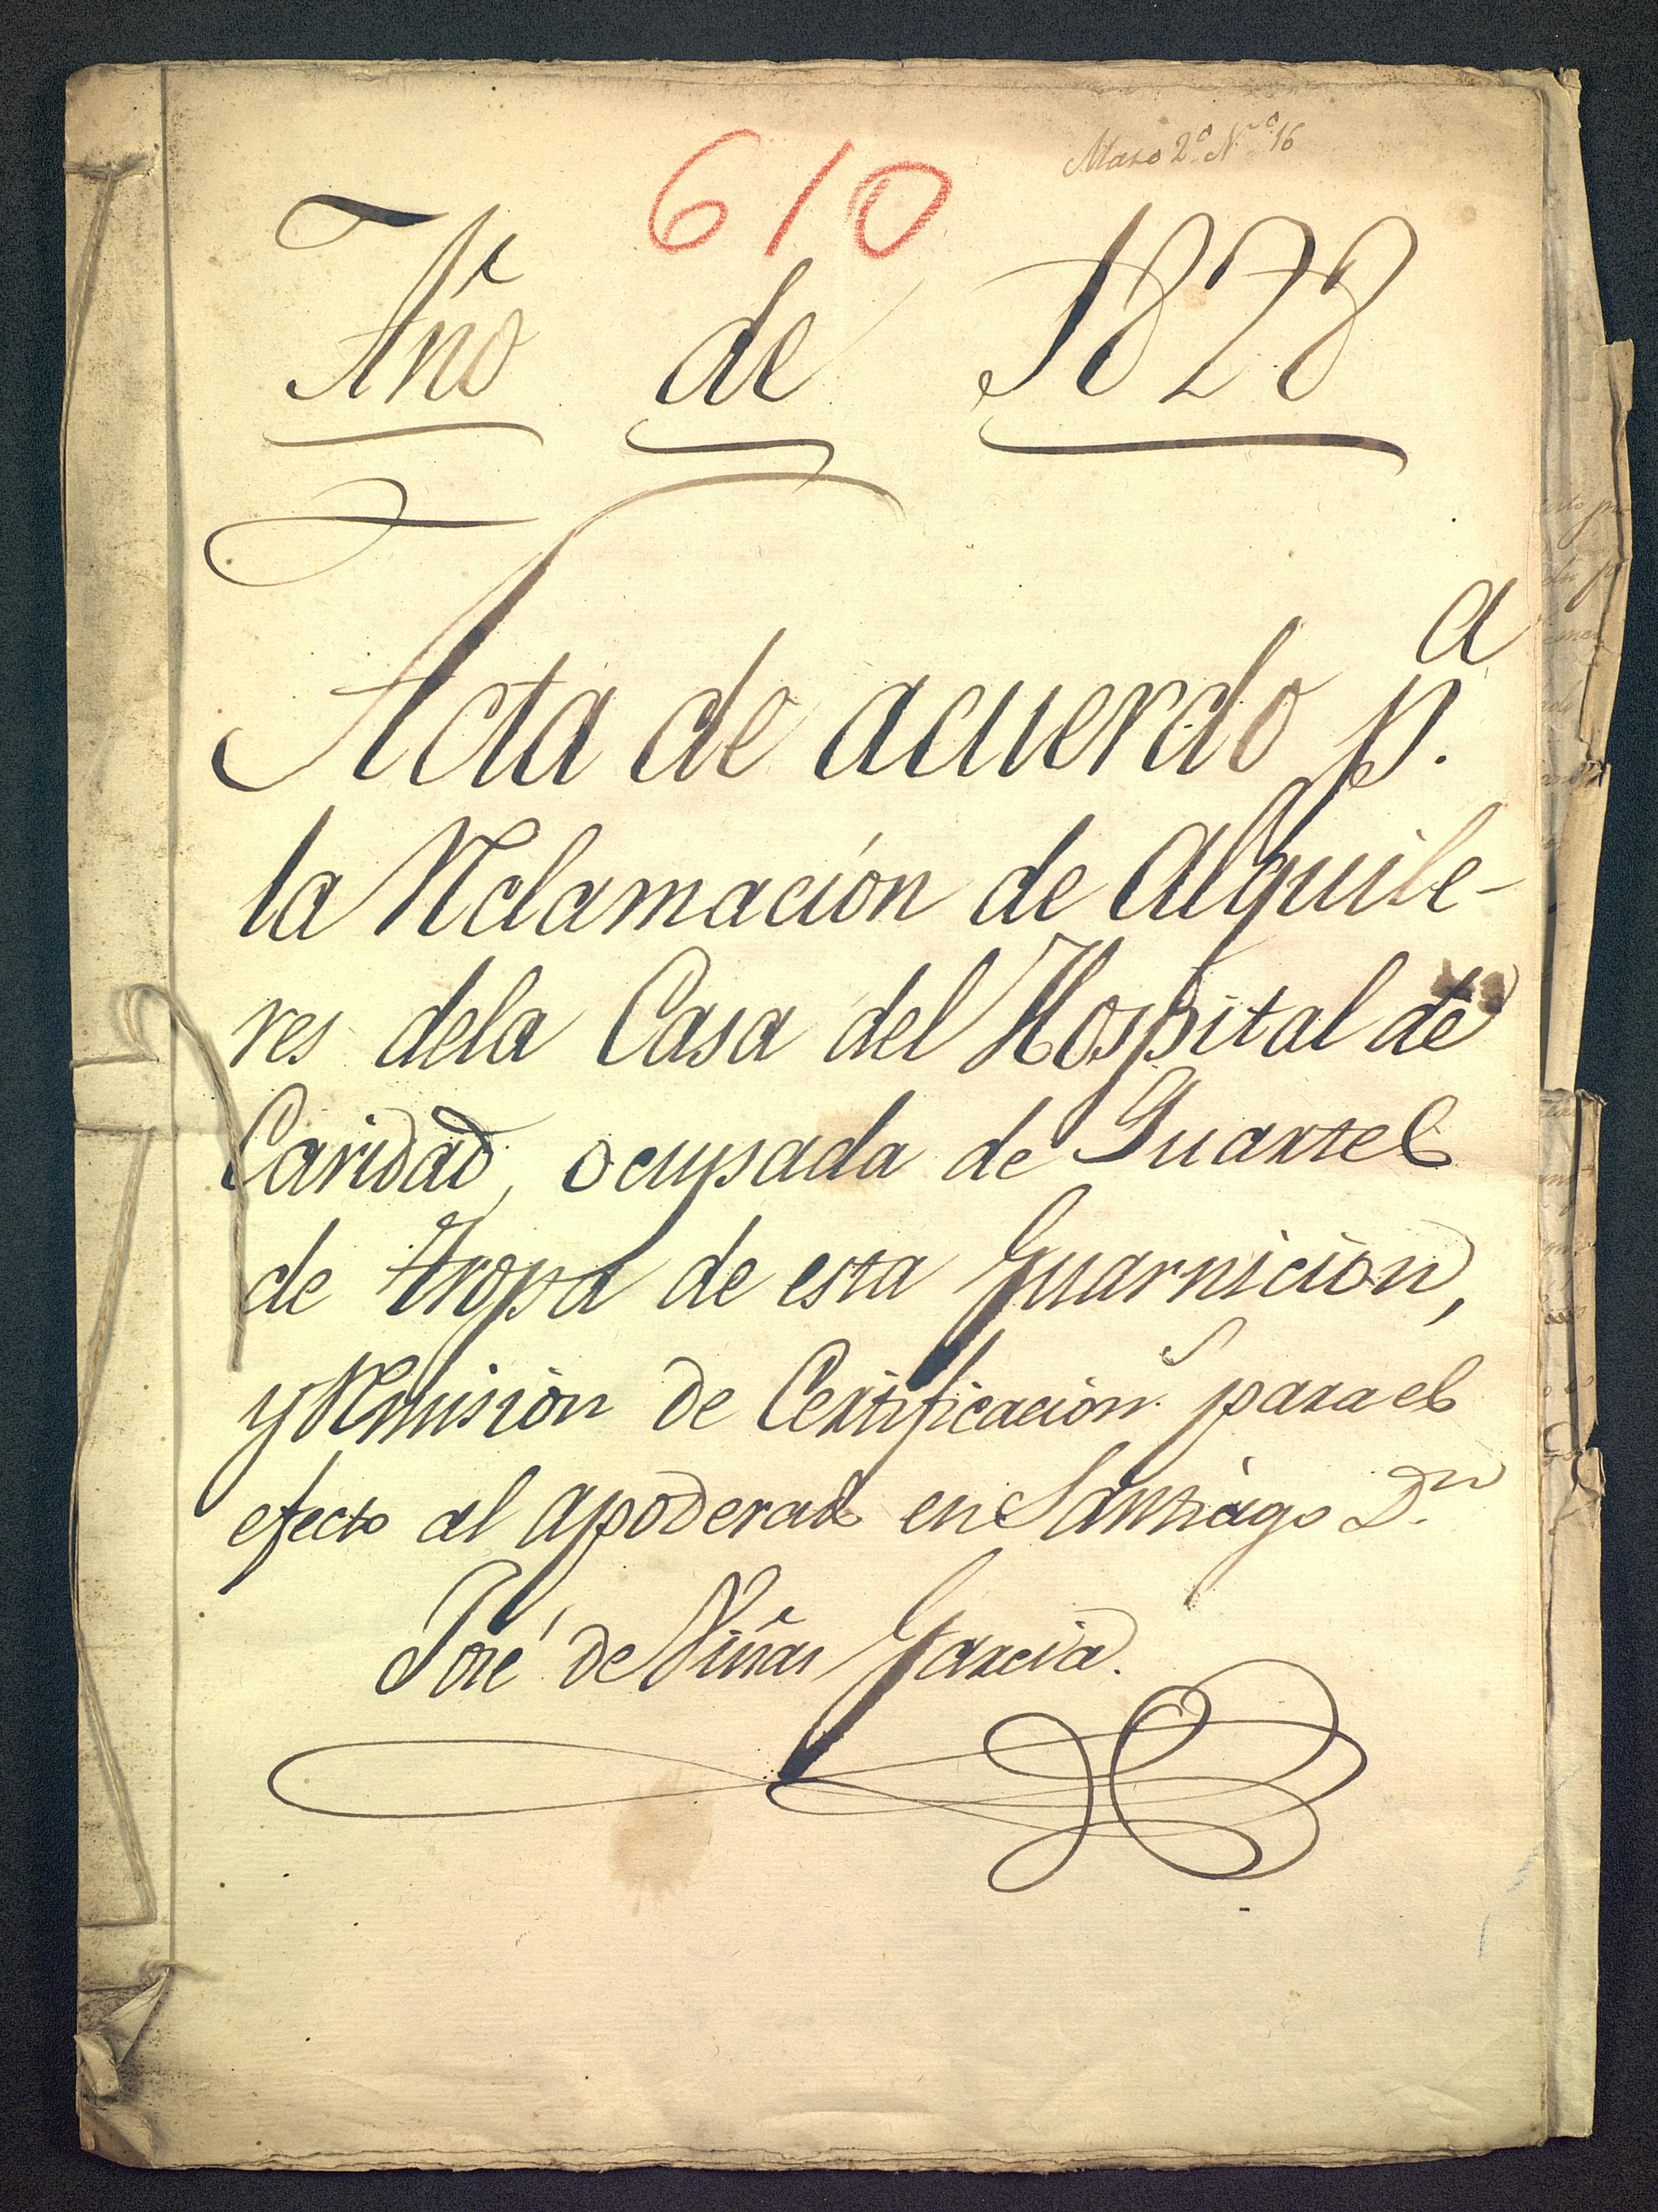 Mazo 2º Nº 16
610
Año de 1828
Acta de acuerdo p.ª
la Reclamación de Alquile-
res dela Casa del Hospital de
Caridad, ocupada de Quartel
de tropa de esta Guarnicion,
y Remision de Certificacion para el
efecto al apoderado en Santiago D.n
José de Viñas Garcia.